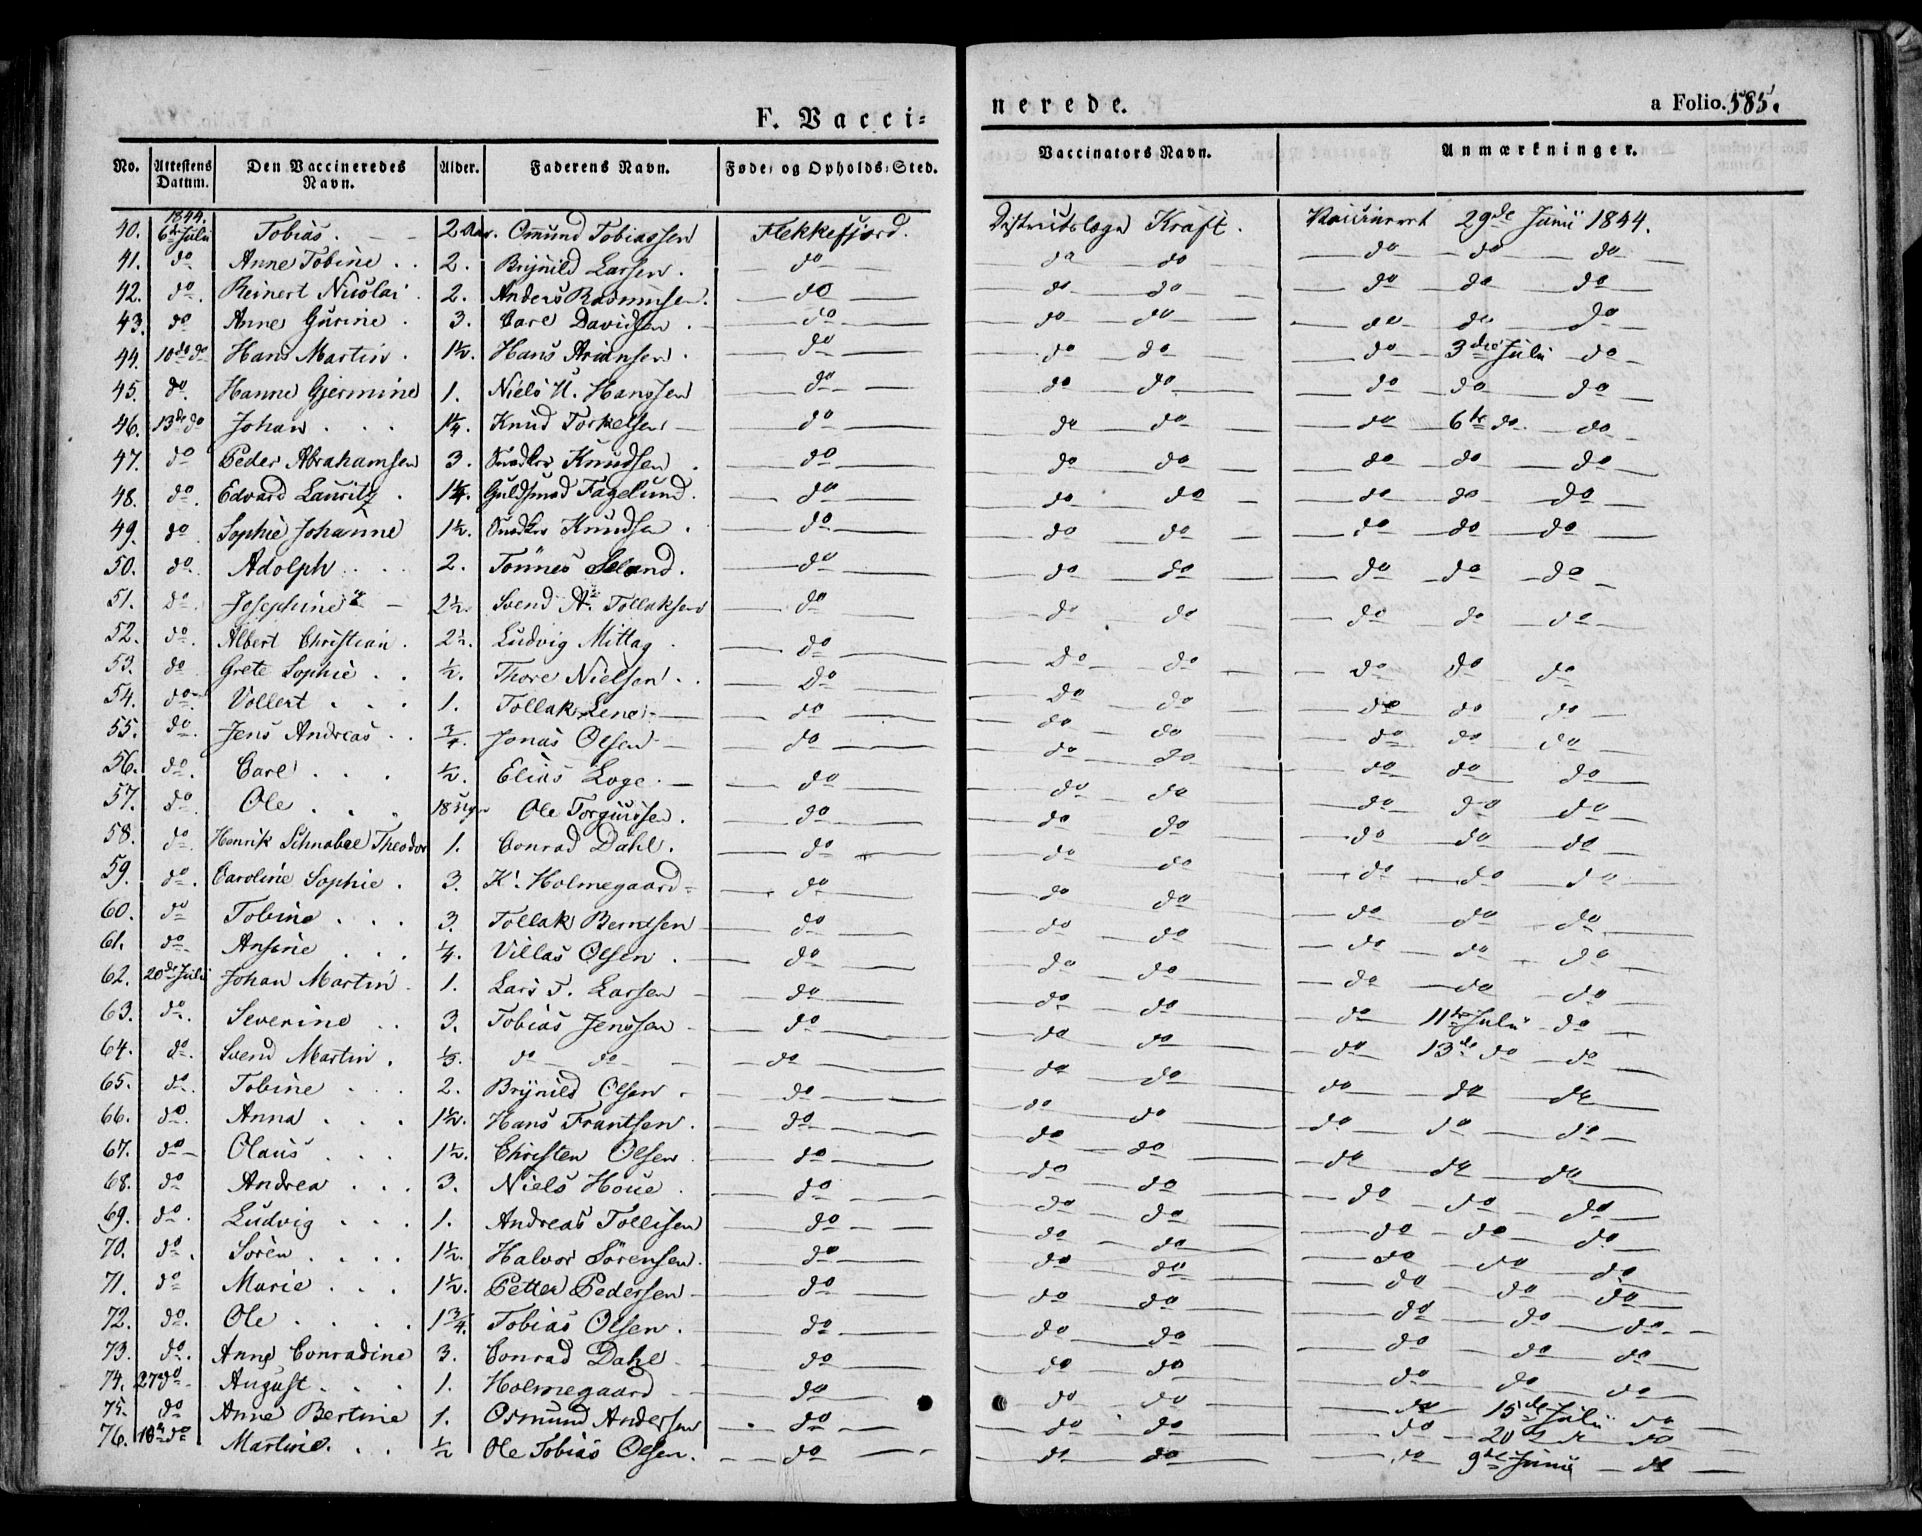 F. Vacci=
nerede.
a Folio. 585.
No. Attestens Datum. Den Vaccineredes Navn. Alder. Faderens Navn. Føde- og Opholds-Sted. Vaccinators Navn. Anmærkninger.
1844.
40. 6te Juli Tobias. 2 Aar. Omund Tobiassen Flekkefjord. Districtslæge Kraft. Vaccineret 29de Junii 1844.
41. do Anne Tobine. 2. Brynild Larsen. do do do do do do
42. do. Reinert Nicolai 2. Anders Rasmusen. do do do do do do
43. do Anne Gurine. 3. Carl Davidsen. do do do do do do
44. 10de do Hans Martin. 1½. Hans Ariansen. do do do do 3die Juli do
45. do. Hanne Gjermine 1. Niels H. Hanssen do do do do do do
46. 13de do Johan 1¼. Knud Torkelsen do do do do 6te do do
47. do Peder Abrahamsen 3. Snedker Knudsen do do do do do do
48. do. Edvard Lauritz. 1¼. Guldsmed Fagelund. do do do do do do
49. do Sophie Johanne 1½. Snedker Knudsen. do do do do do do
50. do. Adolph 2. Tönnes Seland. do do do do do do
51. do. Josephine 2½. Svend A. Tollaksen do do do do do do
52. do. Albert Christian. 2½. Ludvig Mittag. do do do do do do
53. do Grete Sophie ½. Thore Nielsen. do do do do do do
54. do Vollert 1. Tollak Lene do do do do do do
55. do. Jens Andreas ¾. Jonas Olsen do do do do do do
56. do. Carl ½. Elias Loge. do do do do do do
57. do. Ole 18 Uger Ole Torgussen. do do do do do do
58. do. Henrik Schnabel Theodor 1. Conrad Dahl. do do do do do do
59. do. Caroline Sophie. 3. K. Holmegaard do do do do do do
60. do Tobine 3. Tollak Berntsen do do do do do do
61. do Ansine ¼. Villas Olsen. do do do do do do
62. 20de Juli Johan Martin 1. Lars T. Larsen do do do do do do
63. do. Severine 3. Tobias Jenssen do do do do 11te Julii do
64. do. Svend Martin. ⅓. do do do do do do 13de do do
65. do. Tobine 2. Brynild Olsen. do do do do do do
66. do. Anna 1½. Hans Frantsen. do do do do do do
67. do Olaus 1½. Christen Olsen do do do do do do
68. do Andrea 3. Niels Houe. do do do do do do
69. do. Ludvig 1. Andreas Tollisen do do do do do do
70. do. Sören 1½. Halvor Sörensen. do do do do do do
71. do Marie 1½. Petter Pedersen do do do do do do
72. do. Ole 1¾. Tobias Olsen. do do do do do do
73. do. Anne Conradine 3. Conrad Dahl do do do do do do
74. 27 do August 1. Holmegaard do do do do do do
75. do Anne Bertine 1. Osmund Andersen do do do do 15de Julii do
do 20 do do
76. 18de do Martine. ½ Ole Tobias Olsen. do do do do 9de Junii do